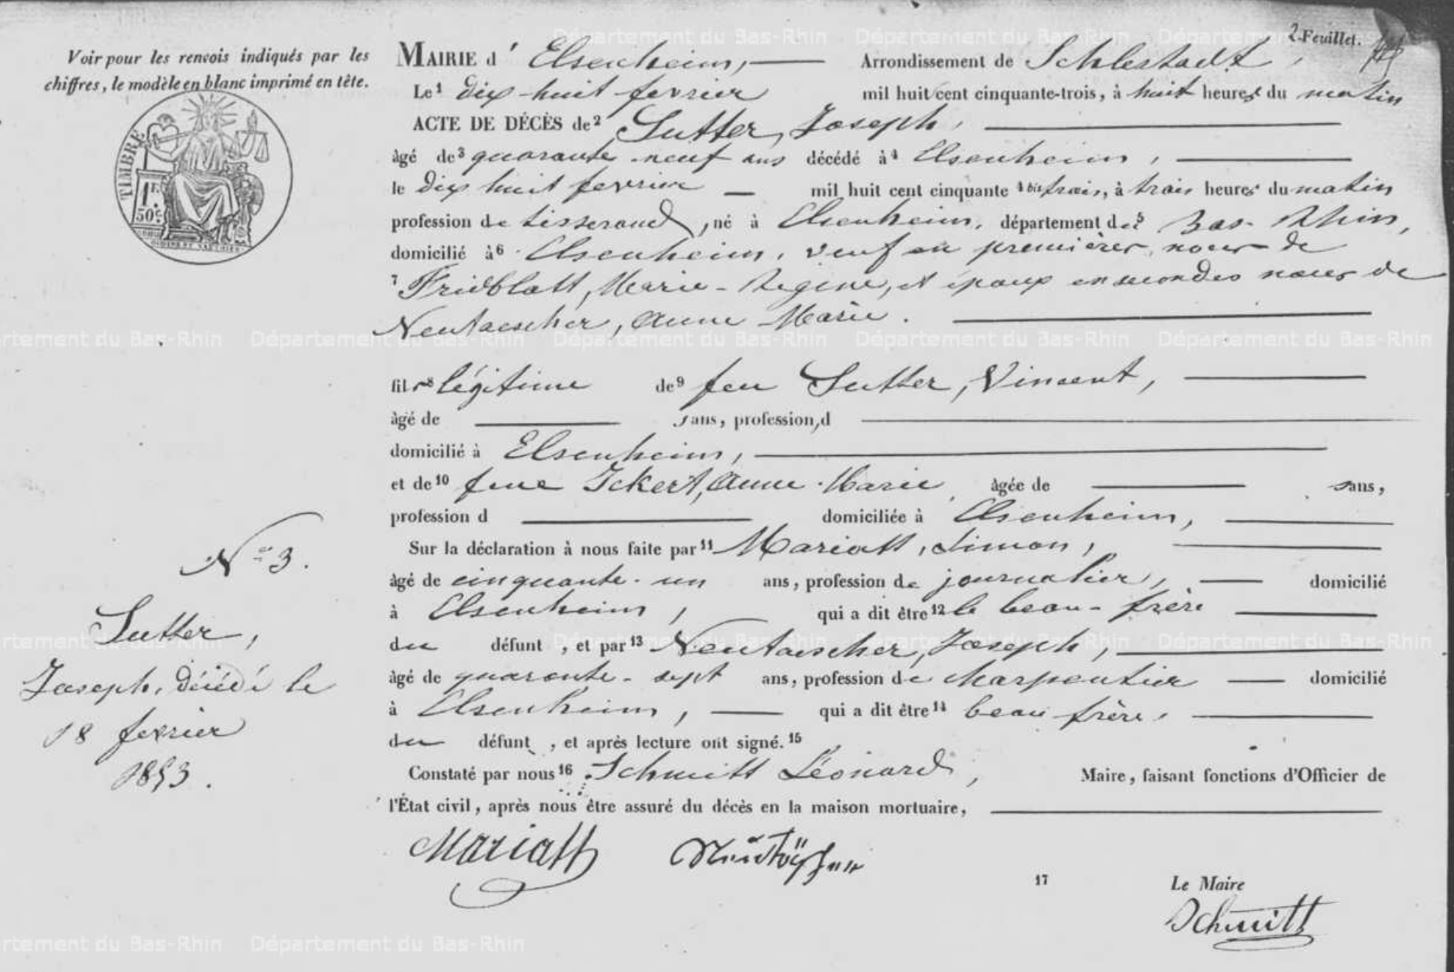 2 Feuillet.
Voir pour les renvois indiqués par les
chiffres, le modèle en blanc imprimé en tête.
TIMBRE
1 F.
50 c.
MAIRIE d' Elsenheim, Arrondissement de Schlestadt,
Le 1 dix huit fevrier mil huit cent cinquante-trois, à huit heures du matin
ACTE DE DÉCÈS de 2 Sutter, Joseph,
âgé de 3 quarante-neuf ans décédé à 4 Elsenheim,
le dix huit fevrier mil huit cent cinquante 4 bis trois, à trois heures du matin
profession de tisserand, né à Elsenheim, département de 5 Bas-Rhin,
domicilié à 6 Elsenheim, veuf en premières noces de
7 Fridblatt, Marie-Regine, et époux en secondes noces de
Neutaescher, Anne Marie.
fils 8 légitime de 9 feu Sutter, Vincent,
âgé de ans, profession d
domicilié à Elsenheim,
et de 10 feue Ickert, Anne-Marie, âgée de ans,
profession d domiciliée à Elsenheim,
Sur la déclaration à nous faite par 11 Mariatt, Simon,
âgé de cinquante-un ans, profession de journalier, domicilié
à Elsenheim, qui a dit être 12 le beau-frère
du défunt, et par 13 Neutaescher, Joseph,
âgé de quarante-sept ans, profession de charpentier domicilié
à Elsenheim, qui a dit être 14 beau frère,
du défunt, et après lecture ont signé. 15
Constaté par nous 16 Schmitt Léonard, Maire, faisant fonctions d'Officier de
l'État civil, après nous être assuré du décès en la maison mortuaire,
Mariatt
17
Le Maire
Schmitt
N° 3.
Sutter,
Joseph, décédé le
18 fevrier
1853.
Département du Bas-Rhin